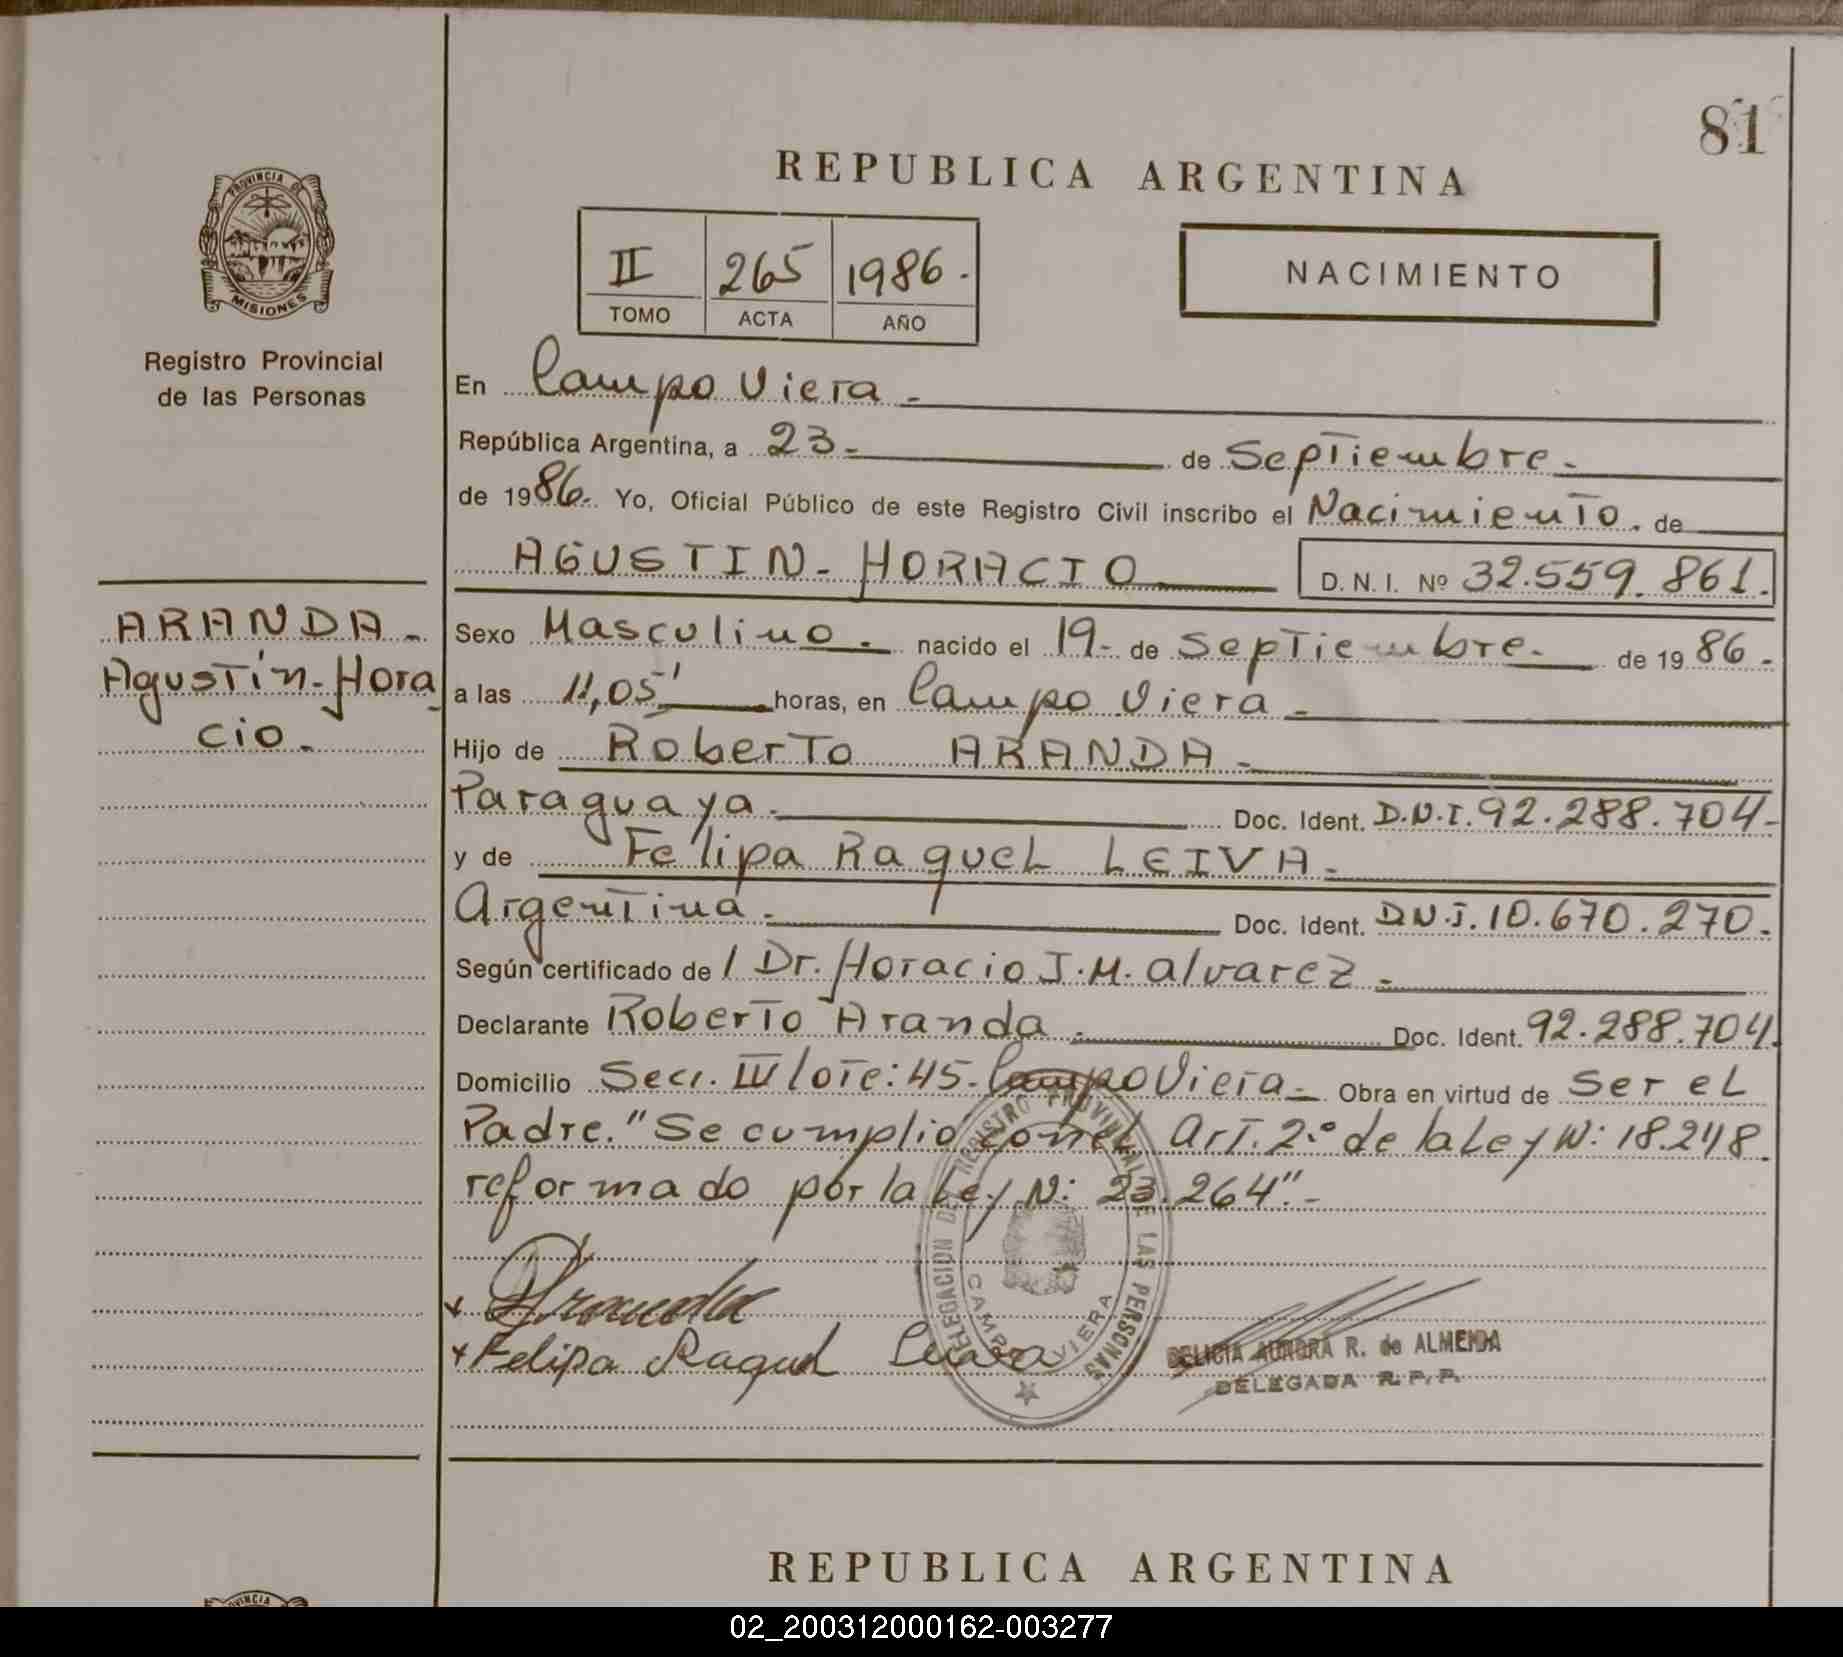 81
REPUBLICA ARGENTINA
PROVINCIA DE
MISIONES
Registro Provincial
de las Personas
II 265 1986.
TOMO ACTA AÑO
NACIMIENTO
En Campo Viera.
República Argentina, a 23. de Septiembre.
de 1986. Yo, Oficial Público de este Registro Civil inscribo el Nacimiento. de
AGUSTIN-HORACIO D.N.I. Nº 32.559.861.
ARANDA.
Agustín-Hora
cio.
Sexo Masculino. nacido el 19. de Septiembre. de 1986.
a las 11,05' horas, en Campo Viera.
Hijo de Roberto ARANDA.
Paraguaya. Doc. Ident. D.N.I. 92.288.704-
y de Felipa Raquel LEIVA.
Argentina. Doc. Ident. D.N.I. 10.670.270.
Según certificado de l Dr. Horacio J.M. Alvarez.
Declarante Roberto Aranda. Doc. Ident. 92.288.704.
Domicilio Secc. IV lote: 45. Campo Viera. Obra en virtud de Ser el
Padre. "Se cumplió con el Art. 2º de la Ley N: 18.248.
reformado por la Ley N: 23.264".-
DELEGACION DEL REGISTRO PROVINCIAL DE LAS PERSONAS
CAMPO VIERA
Felipa Raquel Leiva
DELICIA AURORA R. de ALMEIDA
DELEGADA R.P.P.
REPUBLICA ARGENTINA
02_200312000162-003277